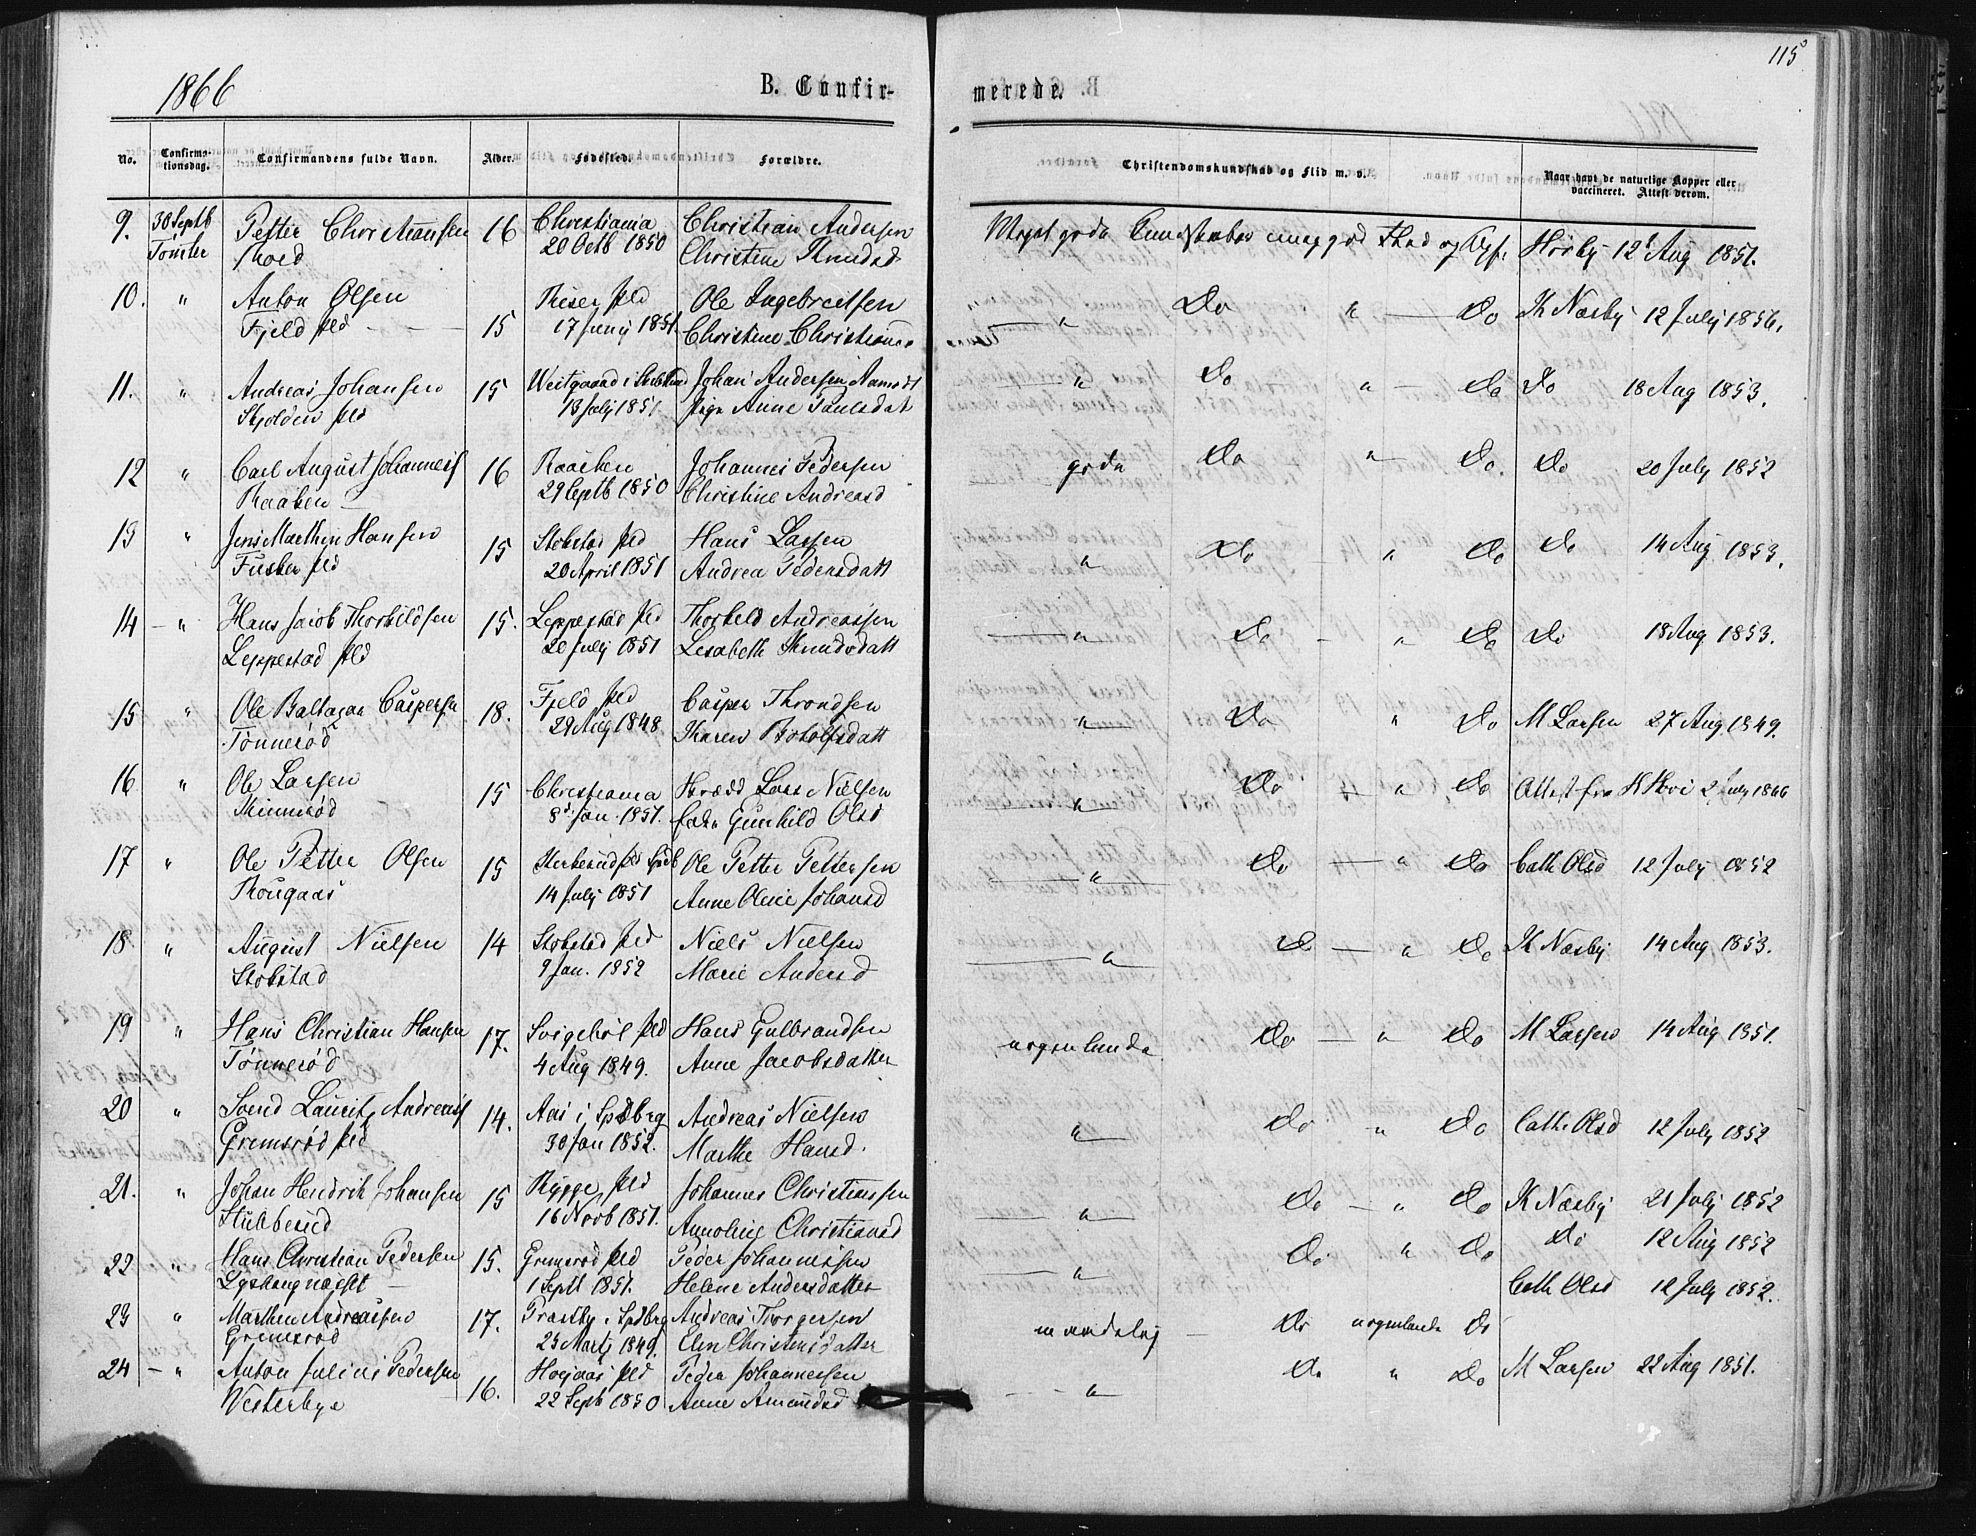 1866
B. Confir-
merede.
115
No.
Confirma-
tionsdag.
Confirmandens fulde Navn.
Alder.
Fødested.
Forældre.
Christendomskundskab og Flid m. v.
Naar havt de naturlige Kopper eller
vaccineret. Attest derom.
9. 30 Septb Petter Christiansen 16 Christiania Christian Andersen Meget gode Kundskaber meget god Flid og Hørbye 12 Aug 1851.
Tomter Moed 20 Octb 1850 Christine Knudsd
10. " Anton Olsen Riiser pld Ole Ingebretsen " Do " Do K Næsby 12 July 1856.
Fjeld pld 15 17 Junij 1851. Christine Christians
11. " Andreas Johansen 15 Westgaard i Johan Andersen " Do " Do Do 18 Aug 1853.
Skjolden pld 13 July 1851 Pige Anne Paulsdat
12 " Carl August Johannesf 16 Raaken Johannes Pedersen gode Do " Do. Do 20 July 1852
Raaken 29 Septb 1850 Christine Andreasd
13 " Jens Marthin Hansen 15 Stokstad pld Hans Larsen " Do " Do Do 14 Aug 1853.
Fusken pld 20 April 1851 Andrea Pedersdatt
14 " Hans Jacob Thorkildsen 15. Leppestad pld Thorkeld Andreassen " Do " Do Do 18 Aug 1853.
Leppestad pld 20 July 1851 Lisabeth Knudsdatt
15 " Ole Baltazar Caspersen 18. Fjeld pld Casper Throndsen " Do " Do M Larsen 27 Aug 1849.
Tønnerød 29 Aug 1848. Karen Botolfsdatt
16 " Ole Larsen 15 Christiania Lars Nielsen " Do " Do Attest fra 2 July 1866
8 Jan. 1851. Gunhild Olsd
17 " Ole Petter Olsen 15 pld Ole Petter Pettersen " Do " Do Cath Olsd 12 July 1852
Rougaas 14 July 1851 Anne Oline Johansd
18 " August Nielsen 14 Stokstad pld Niels Nielsen " Do " Do K Næsby 14 Aug 1853.
Stokstad 9 Jan. 1852 Marie Andersd
19 " Hans Christian Hansen 17. pld Hans Gulbrandsen nogenlunde Do " Do M Larsen 14 Aug 1851.
Tønnerød 4 Aug 1849. Anne Jacobsdatter
20 " Svend Lauritz Andreasf 14. Aas i Spdberg Andreas Nielsen " Do " Do Cath. Olsd 12 July 1852
Gremsrød pld 30 Jan 1852. Marthe Hansd.
21. " Johan Hendrik Johansen 15 Rygge pld Johannes Christiansen " Do " Do K Næsby 21 July 1852
Stubberud 16 Novb 1851. Annoline Christiansd
22 " Hans Christian Pedersen 15. Gremsrød pld Peder Johannessen " Do " Do Do 12 Aug 1852
1 Septb 1851. Helene Andersdatter
23 " Marthin Andreassen 17. i Spdberg Andreas Torgersen maadelig Do nogenlunde Do Cath Olsd 12 July 1852.
Gremsrød 25 Marts 1849. Elen Christensdatter
24 " Anton Julius Pedersen 16. pld Peder Johannessen " Do " Do M Larsen 22 Aug 1851.
Westerbye 22 Septb 1850 Anne Amundsd